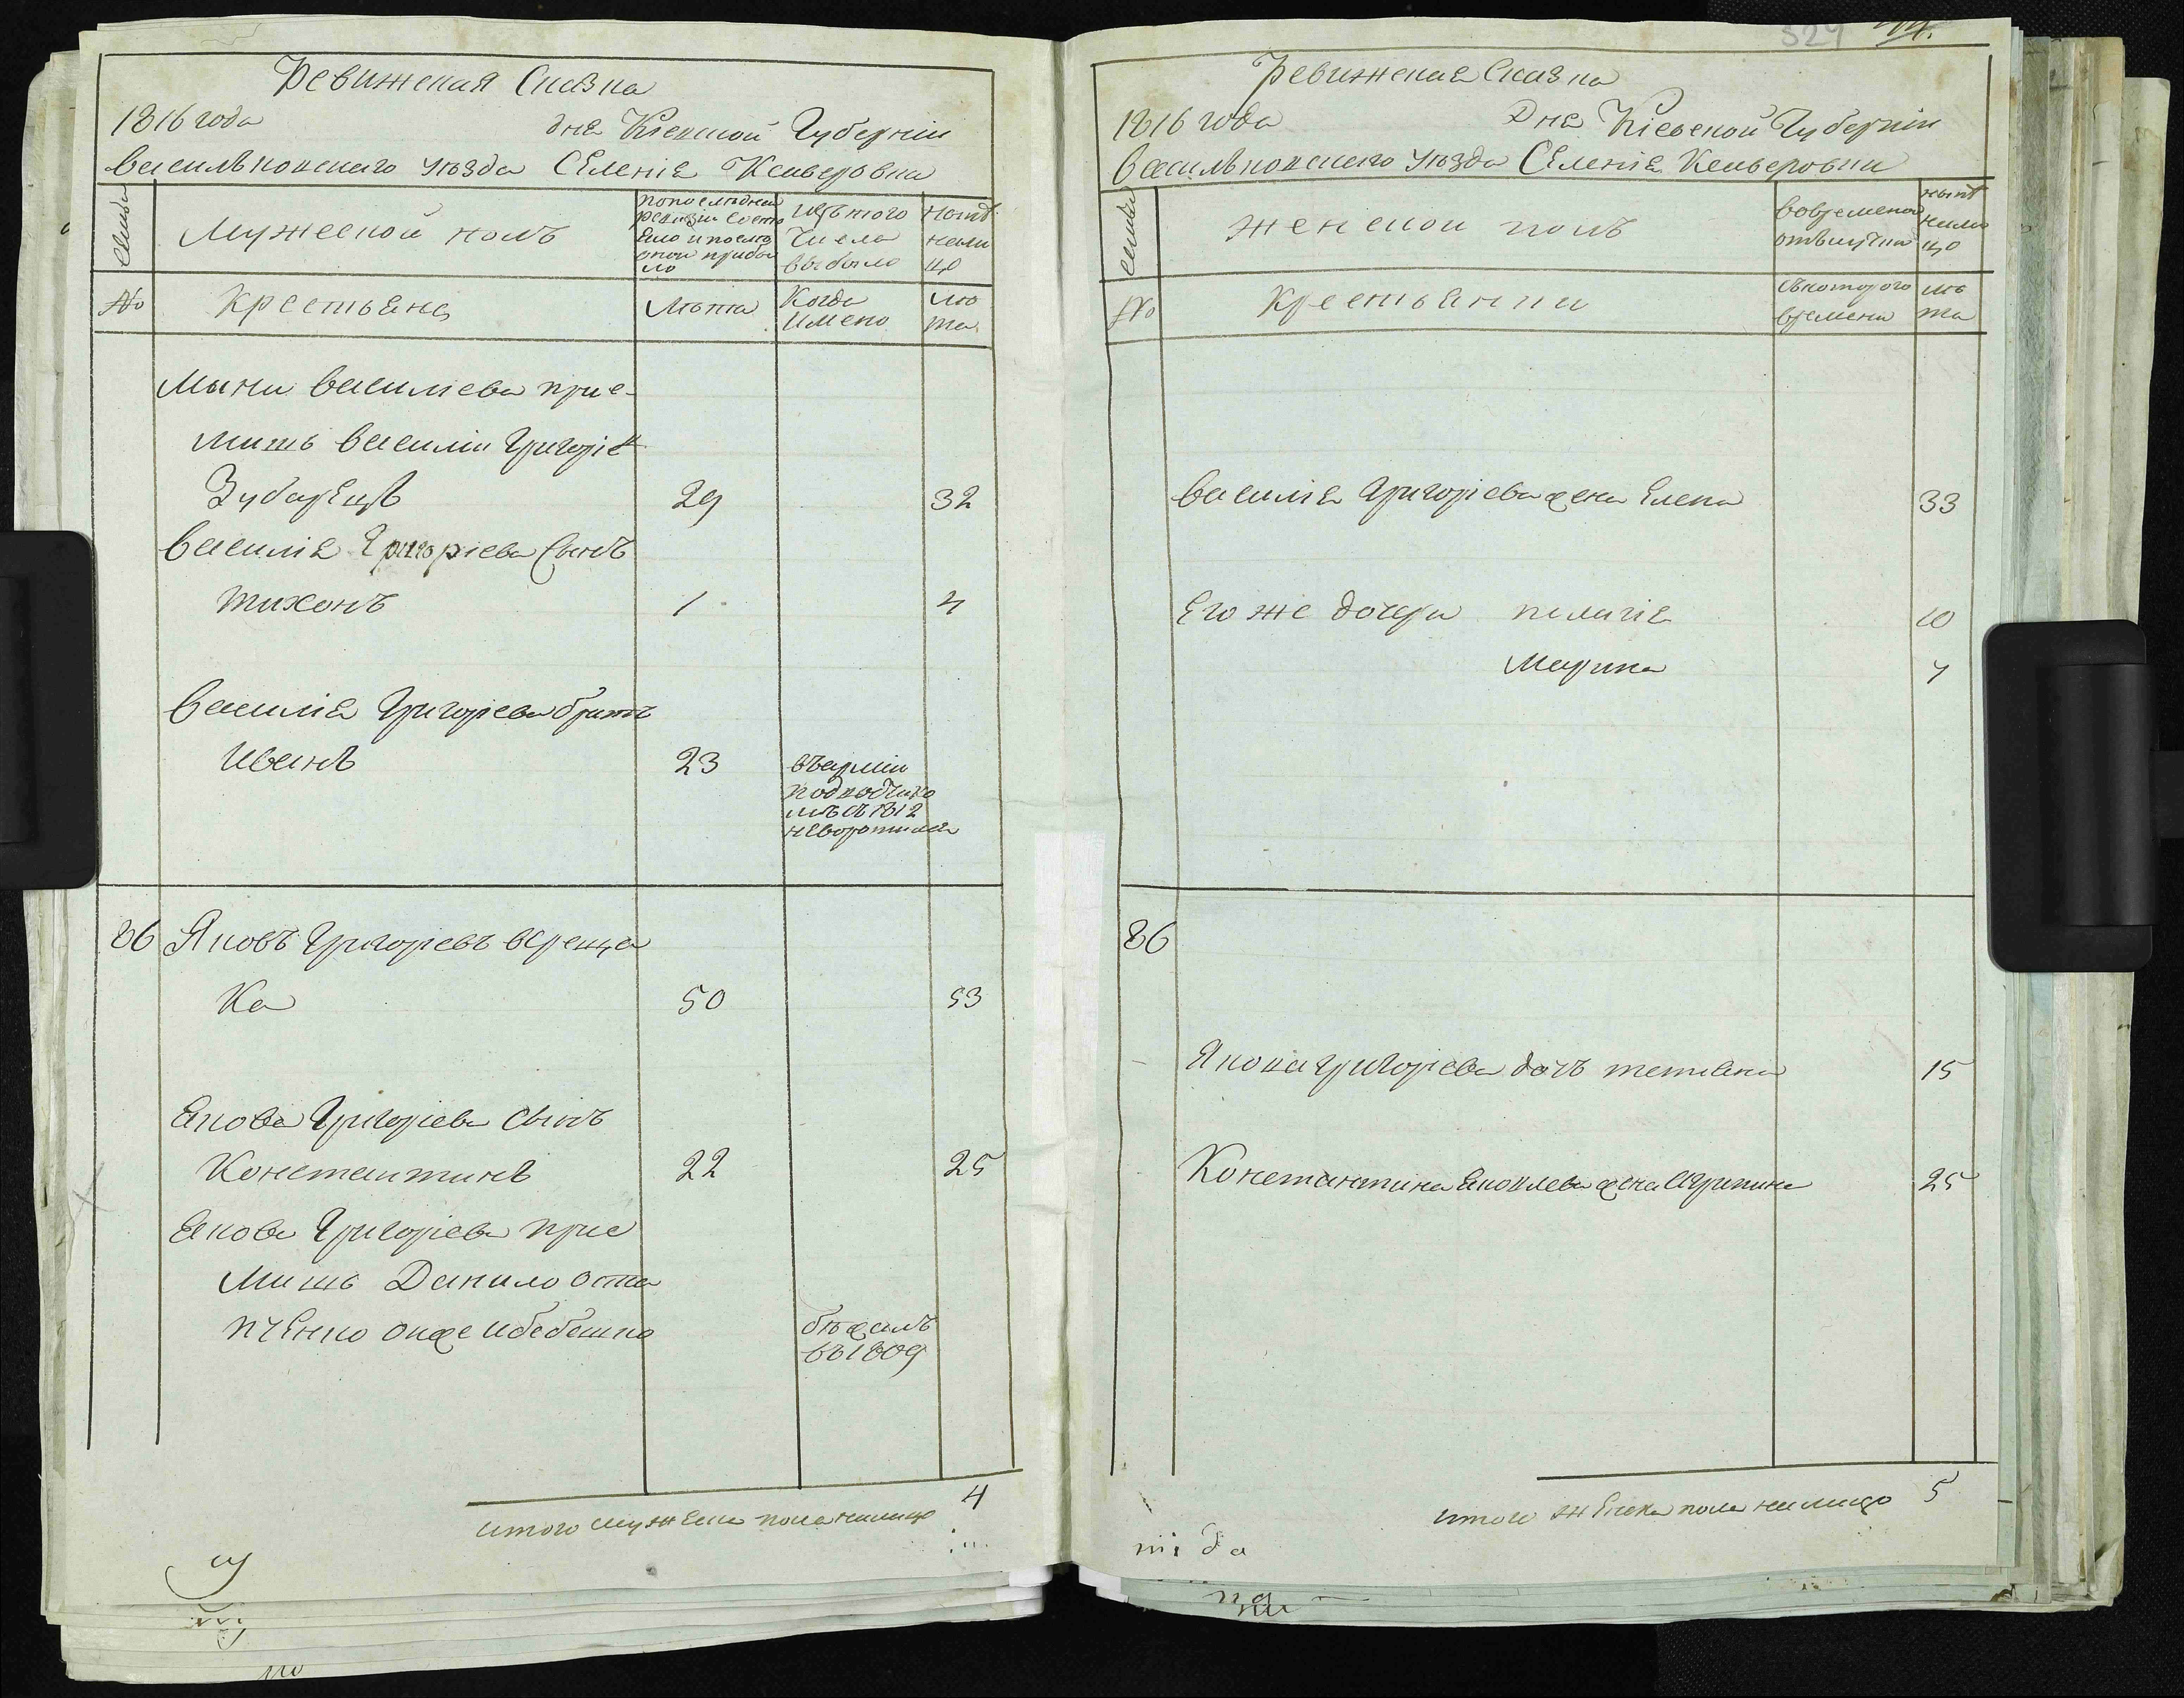 Ревижская Сказка
1816 года дня Киевской Губернии
васильковского уезда Селения Кошеровки
семьи
Мужеской полъ
по последней ревизии состояло и после оной прибыло
изъ того числа выбыло
ныне налицо
№
Крестьяне
Лета
Когда имено
лета
василиева прие-
мишь василий Григориев
Зубарецъ 29 32
василия Григориева сынъ
тихонъ 1 4
василия Григориева братъ
Иванъ 23 въ армии
с 1812
неворотился
86 Яковъ Григориевъ
ка 50 53
якова Григориева сынъ
Константинъ 22 25
якова Григориева прие
мишь Данило оста
пченко онже бежалъ
въ 1809
итого мужеска пола налицо 4
529
Ревижская Сказка
1816 года Дня Киевской Губернии
васильковского уезда Селения Кошеровки
семьи
женской полъ
во временной отлучке
ныне налицо
№
Крестьянки
съ которого времени
лета
василия Григориева жена Елена 33
Его же дочери пелагия 10
Марина 7
86
Якова григориева дочь татияна 15
Константина яковлева жена Агрипина 25
итого женска пола налицо 5